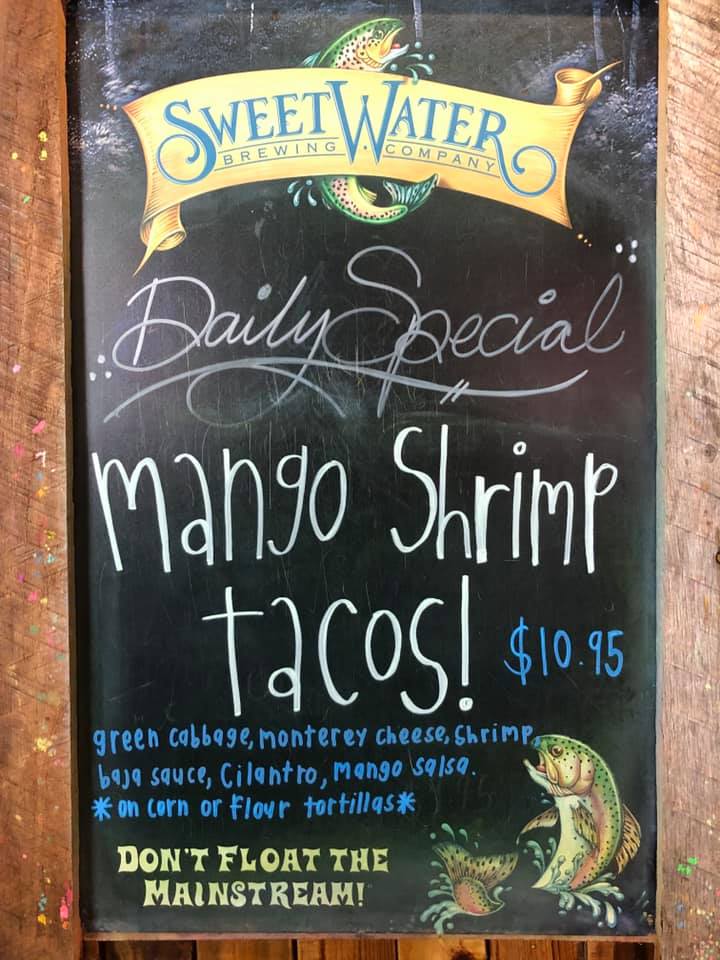 SWEETWATER
BREWING COMPANY
Daily Special
mango Shrimp
tacos!
$10.95
green cabbage, monterey cheese, shrimp,
baja sauce, Cilantro, mango salsa.
*on corn or flour tortillas*
DON'T FLOAT THE
MAINSTREAM!